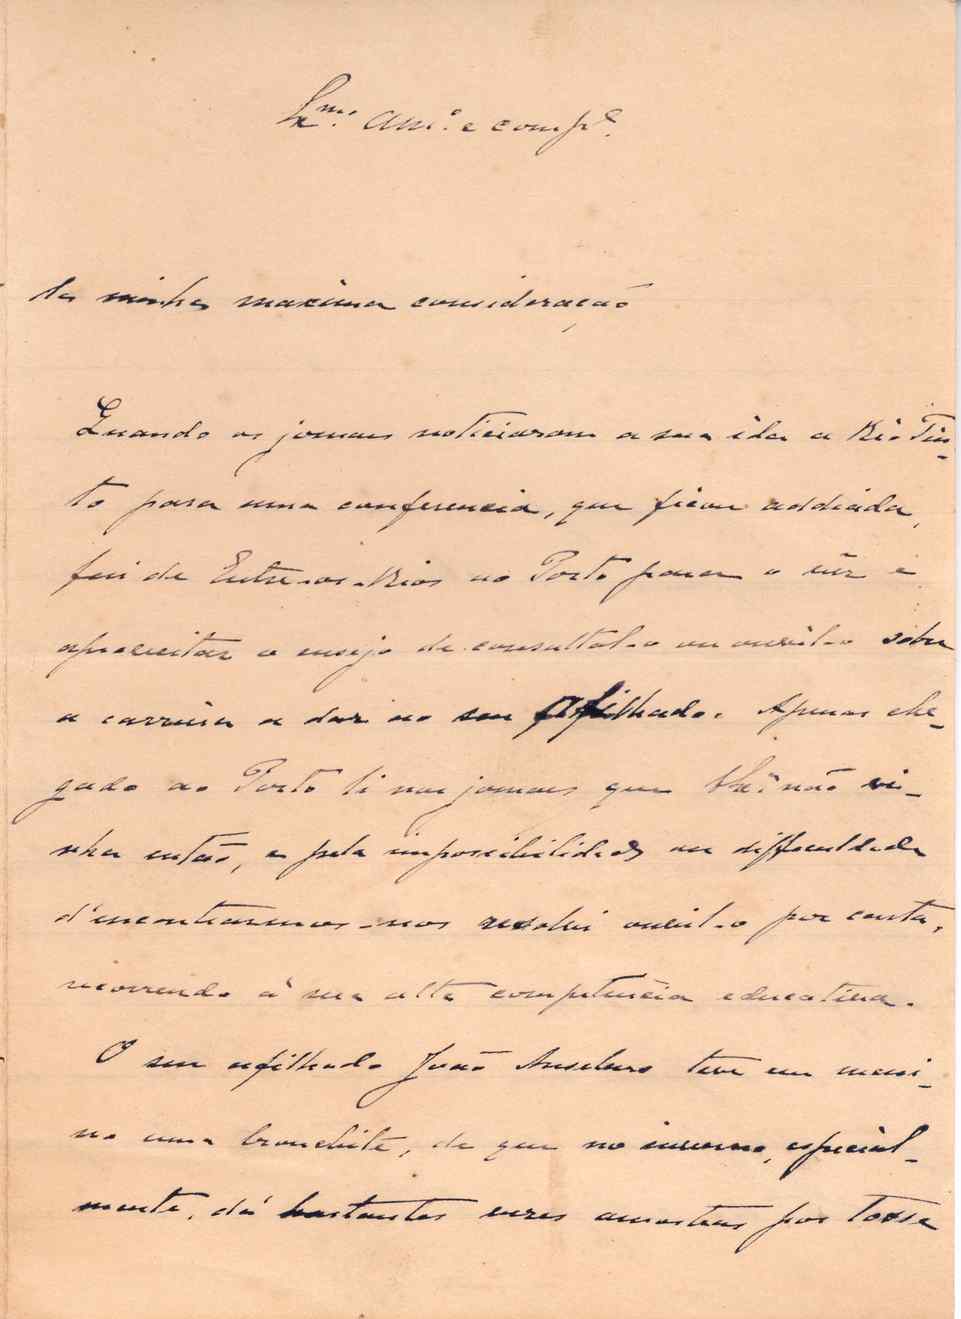 Ex.mo Am.o e comp.e
da minha maxima consideração
Quando os jornaes noticiaram a sua ida a Rio Tin-
to para uma conferencia, que ficou addiada,
fui de Entre-os-Rios ao Porto para o vêr e
aproveitar o ensejo de consultal-o ou ouvil-o sobre
a carreira a dar ao seu afilhado. Apenas che-
gado ao Porto li nos jornaes que não vi-
nha então, e pela impossibilidade ou difficuldade
d'encontrarmos-nos resolvi ouvil-o por carta,
recorrendo á sua alta competencia educativa.
O seu afilhado João Anselmo teve em meni-
no uma bronchite, de que no inverno, especial-
mente, dá bastantes vezes amostras por tosse